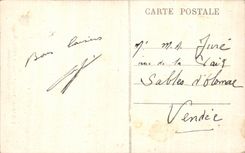 CARTE POSTALE
Bons baisers
Mr M. A. Juré
rue de la
Sables d'Olonne
Vendée